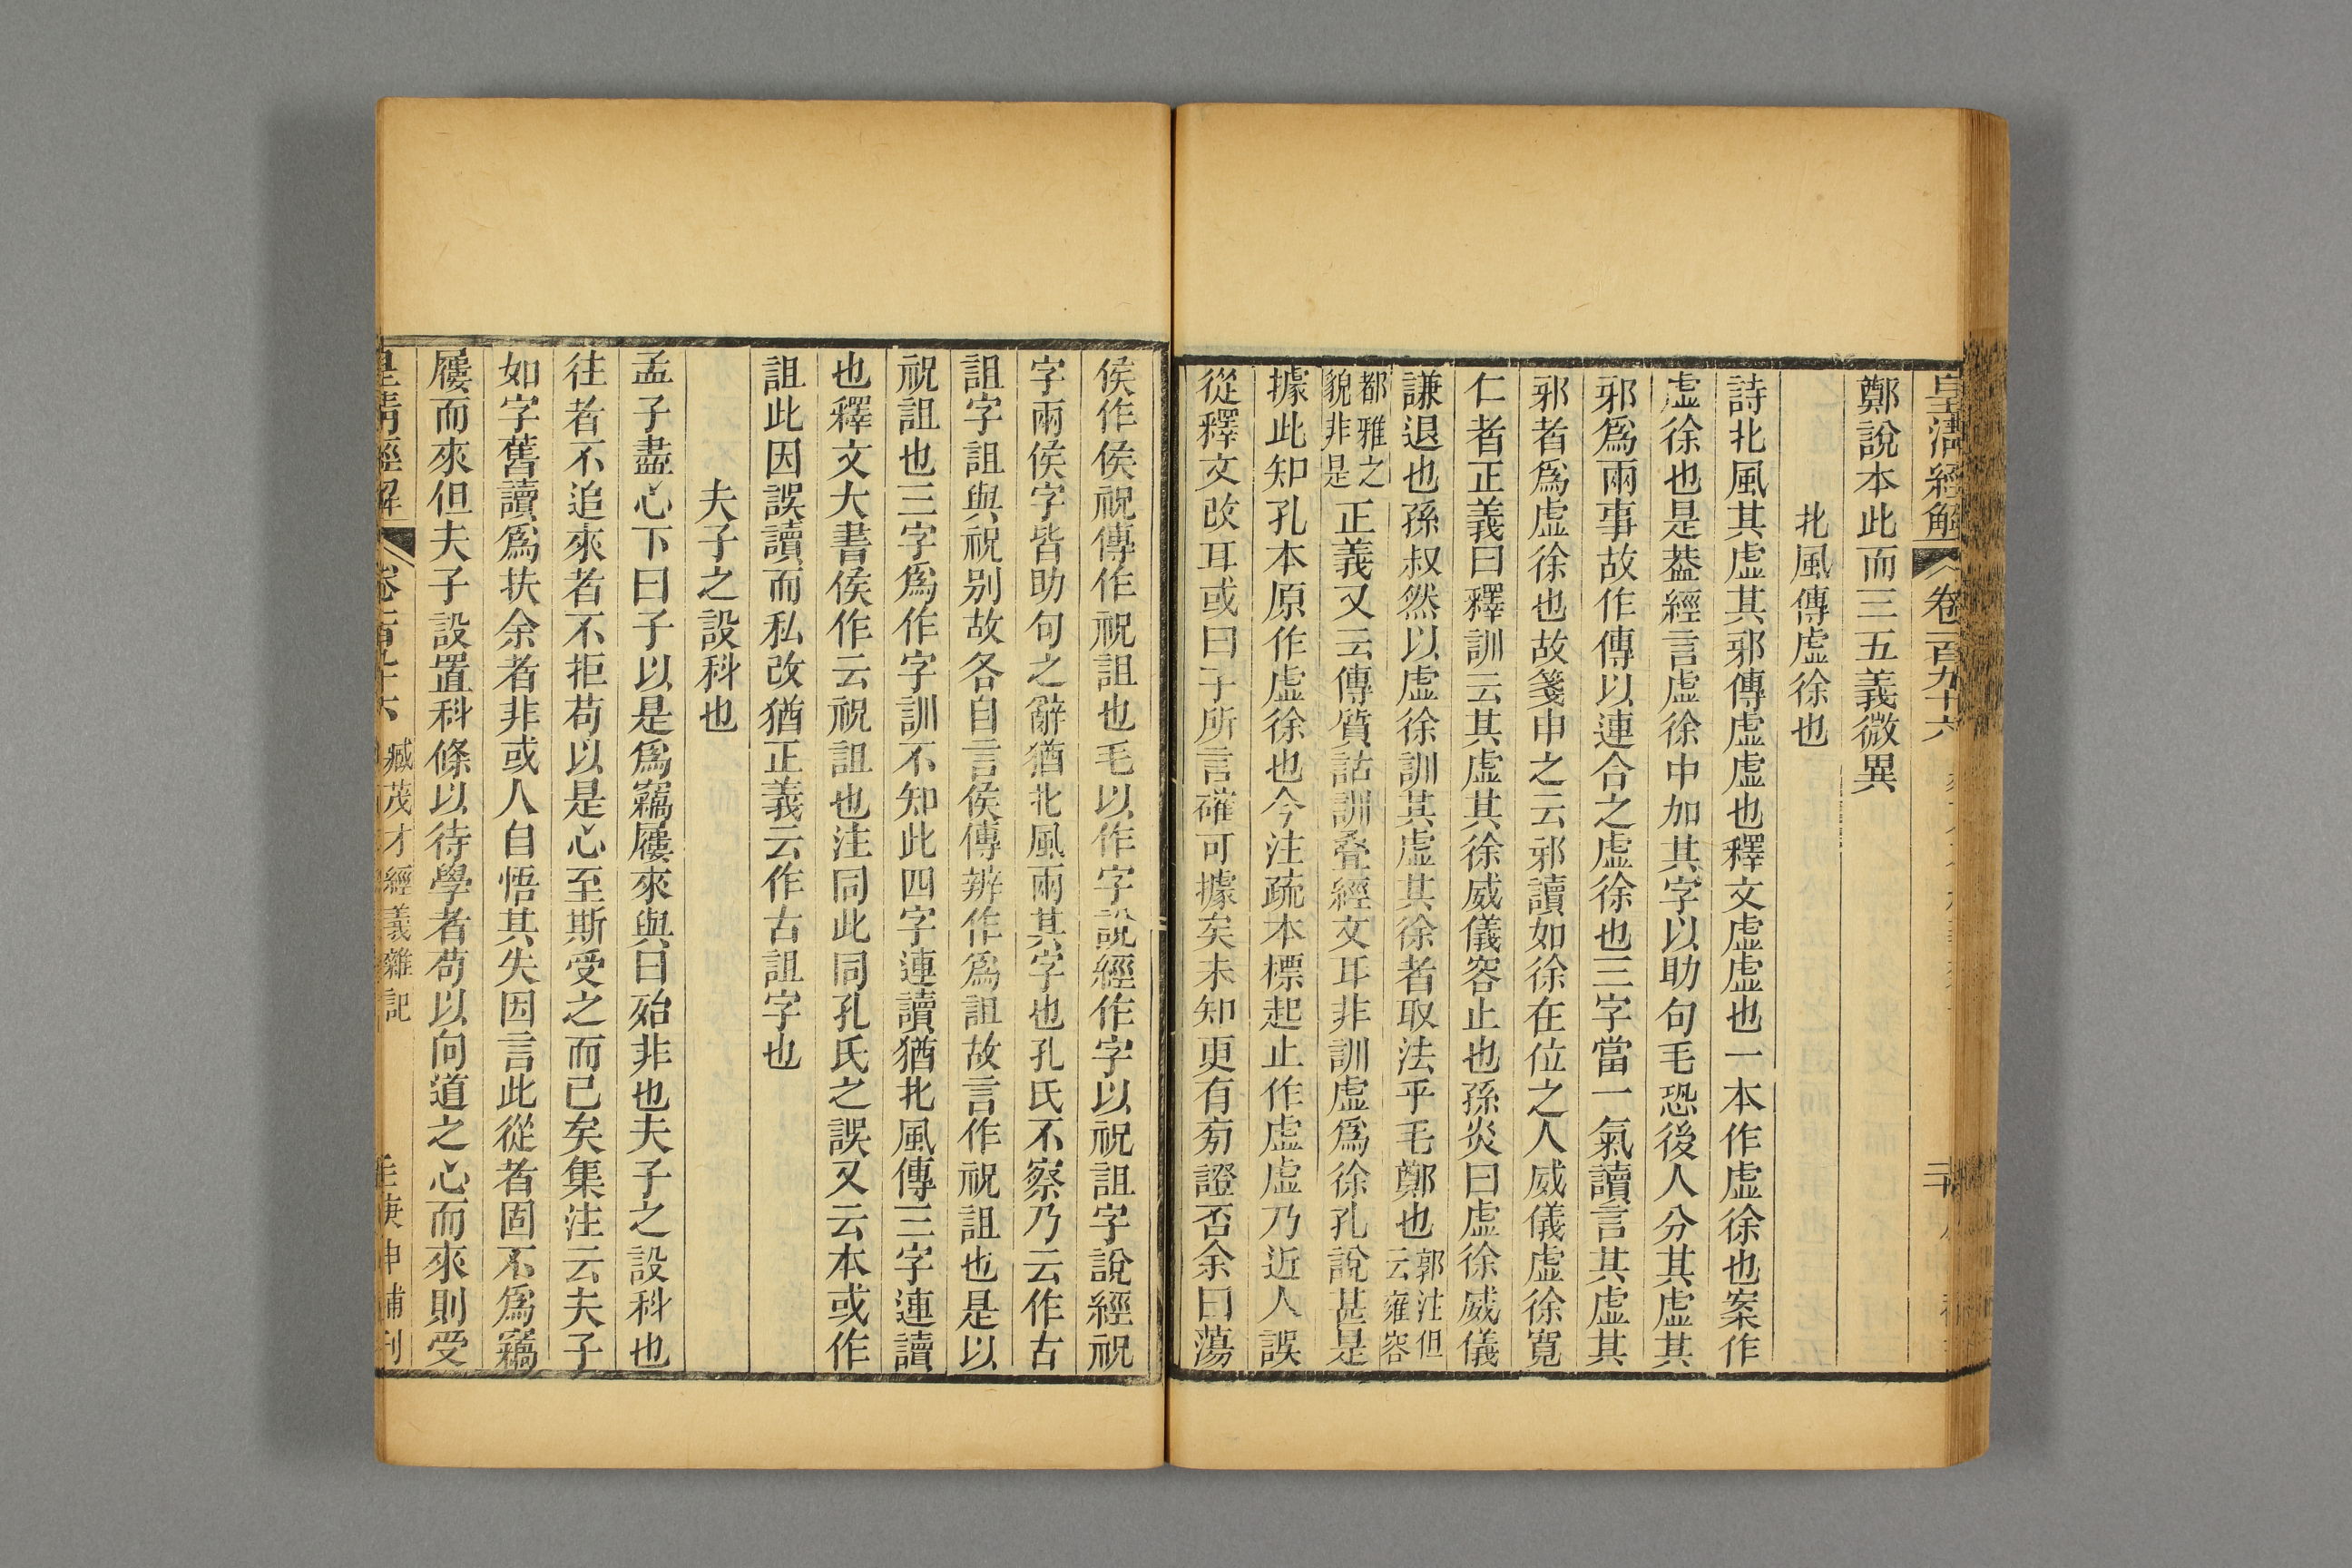 皇清經解
卷一百九十六
鄭說本此而三五義微異
北風傳虛徐也
詩北風其虛其邪傳虛虛也釋文虛虛也一本作虛徐也案作
虛徐也是葢經言虛徐中加其字以助句毛恐後人分其虛其
邪爲兩事故作傳以連合之虛徐也三字當一氣讀言其虛其
邪者爲虛徐也故箋申之云邪讀如徐在位之人威儀虛徐寬
仁者正義曰釋訓云其虛其徐威儀容止也孫炎曰虛徐威儀
謙退也孫叔然以虛徐訓其虛其徐者取法乎毛鄭也郭注但云雍容
都雅之貌非是正義又云傳質詁訓疊經文耳非訓虛爲徐孔說甚是
據此知孔本原作虛徐也今注疏本標起止作虛虛乃近人誤
從釋文改耳或曰子所言確可據矣未知更有㫄證否余曰蕩
侯作侯祝傳作祝詛也毛以作字說經作字以祝詛字說經祝
字兩侯字皆助句之辭猶北風兩其字也孔氏不察乃云作古
詛字詛與祝别故各自言侯傳辨作爲詛故言作祝詛也是以
祝詛也三字爲作字訓不知此四字連讀猶北風傳三字連讀
也釋文大書侯作云祝詛也注同此同孔氏之誤又云本或作
詛此因誤讀而私改猶正義云作古詛字也
夫子之設科也
孟子盡心下曰子以是爲竊屨來與曰殆非也夫子之設科也
往者不追來者不拒苟以是心至斯受之而已矣集注云夫子
如字舊讀爲扶余者非或人自悟其失因言此從者固不爲竊
屨而來但夫子設置科條以待學者苟以向道之心而來則受
皇清經解
卷一百九十六
臧茂才經義雜記
庚申補刊